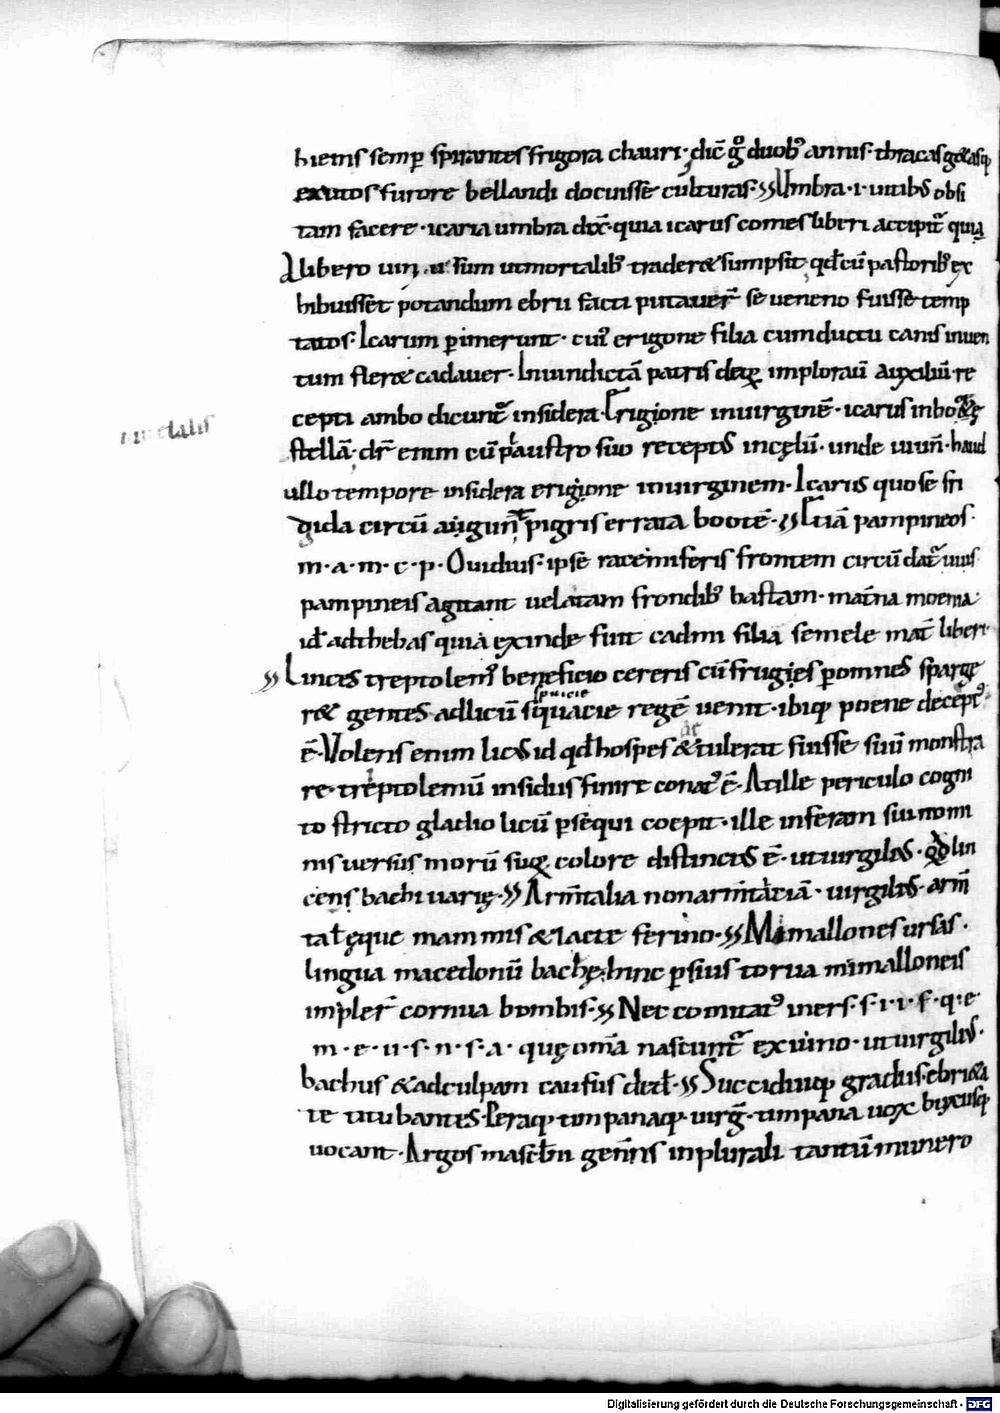 hiems semꝑ spirantes frigora chauri· dic̄ gͦ duob᷒ annis· thracas g&asq
exutos furore bellandi docuisse culturas· Umbra·i·uitib᷒ obsi
tam facere· icaria umbra dix̄· quia icarus comes liberi accipit᷑ quia
A libero uin sum ut mortalib᷒ trader& sumpsit· qđ cū pastorib᷒ ex
hibuisset potandum ebrii facti putauer̄ se ueneno fuisse temp
tatos· Icarum ꝑimerunt· cui᷒ erigone filia cum ductu canis inuen
tum fler& cadauer· In uindictā patris deꝝ implorauī auxiliū re
cepti ambo dicunt᷑ in sidera· Erigione in uirginē· icarus in bo&ę
stellā· dr̄ enim cū plaustro suo recept᷒ in cęlū· unde iuun̄· haud
ullo tempore in sidera erigione in uirginem· Icarus quo se fri
gida circū aiigun̄t pigri serrata bootē· Etiā pampineos·
m·a·m·c·p· Ouidius· ipse racemiferis frontem circū dat᷑ uuis
pampineis agitant uelatam frondib᷒ hastam· mat̄na moenia·
id ad thebas quia exinde fuit cadmi filia semele mat̄ liberi·
Linces treptolem᷒ beneficio cereris cū frugies ꝑ omnes sparge
r& gentes ad licū squacie regē uenit· ibiq poene decept᷒
ē· Volens enim lic᷒ id qđ hospes &tulerat fuisse suū monstra
re· treptolemū insidiis finire conat᷒ ē· At ille periculo cogni
to stricto gladio licū ꝑsequi coepit· ille in feram sui nomi
nis uersus morū suꝝ colore distinct᷒ ē· ut uirgili᷒· qđ lin
cens bachi uarię· Arm̄talia non arm̄tariā· uirgili᷒· arm̄
tal ęque mammis & lacte ferino· Mimallones ursas·
lingua macedonū bachę· hinc ꝑsius torua mimalloneis
impler̄ cornua bombis· Nec comitat᷒ iners· s·i·i·s·q·e·
m·e·u·s·n·s·a· quę om̄a nascunt᷑ ex uino· ut uirgili᷒·
bachus & ad culpam causas ded̄· Succiduiq gradus· ebri&a
te titubantes· Ęeraq timpanaq· uirḡ· timpana uox buxusq
uocant· Argos masclīn gen̄ris in plurali tantū numero